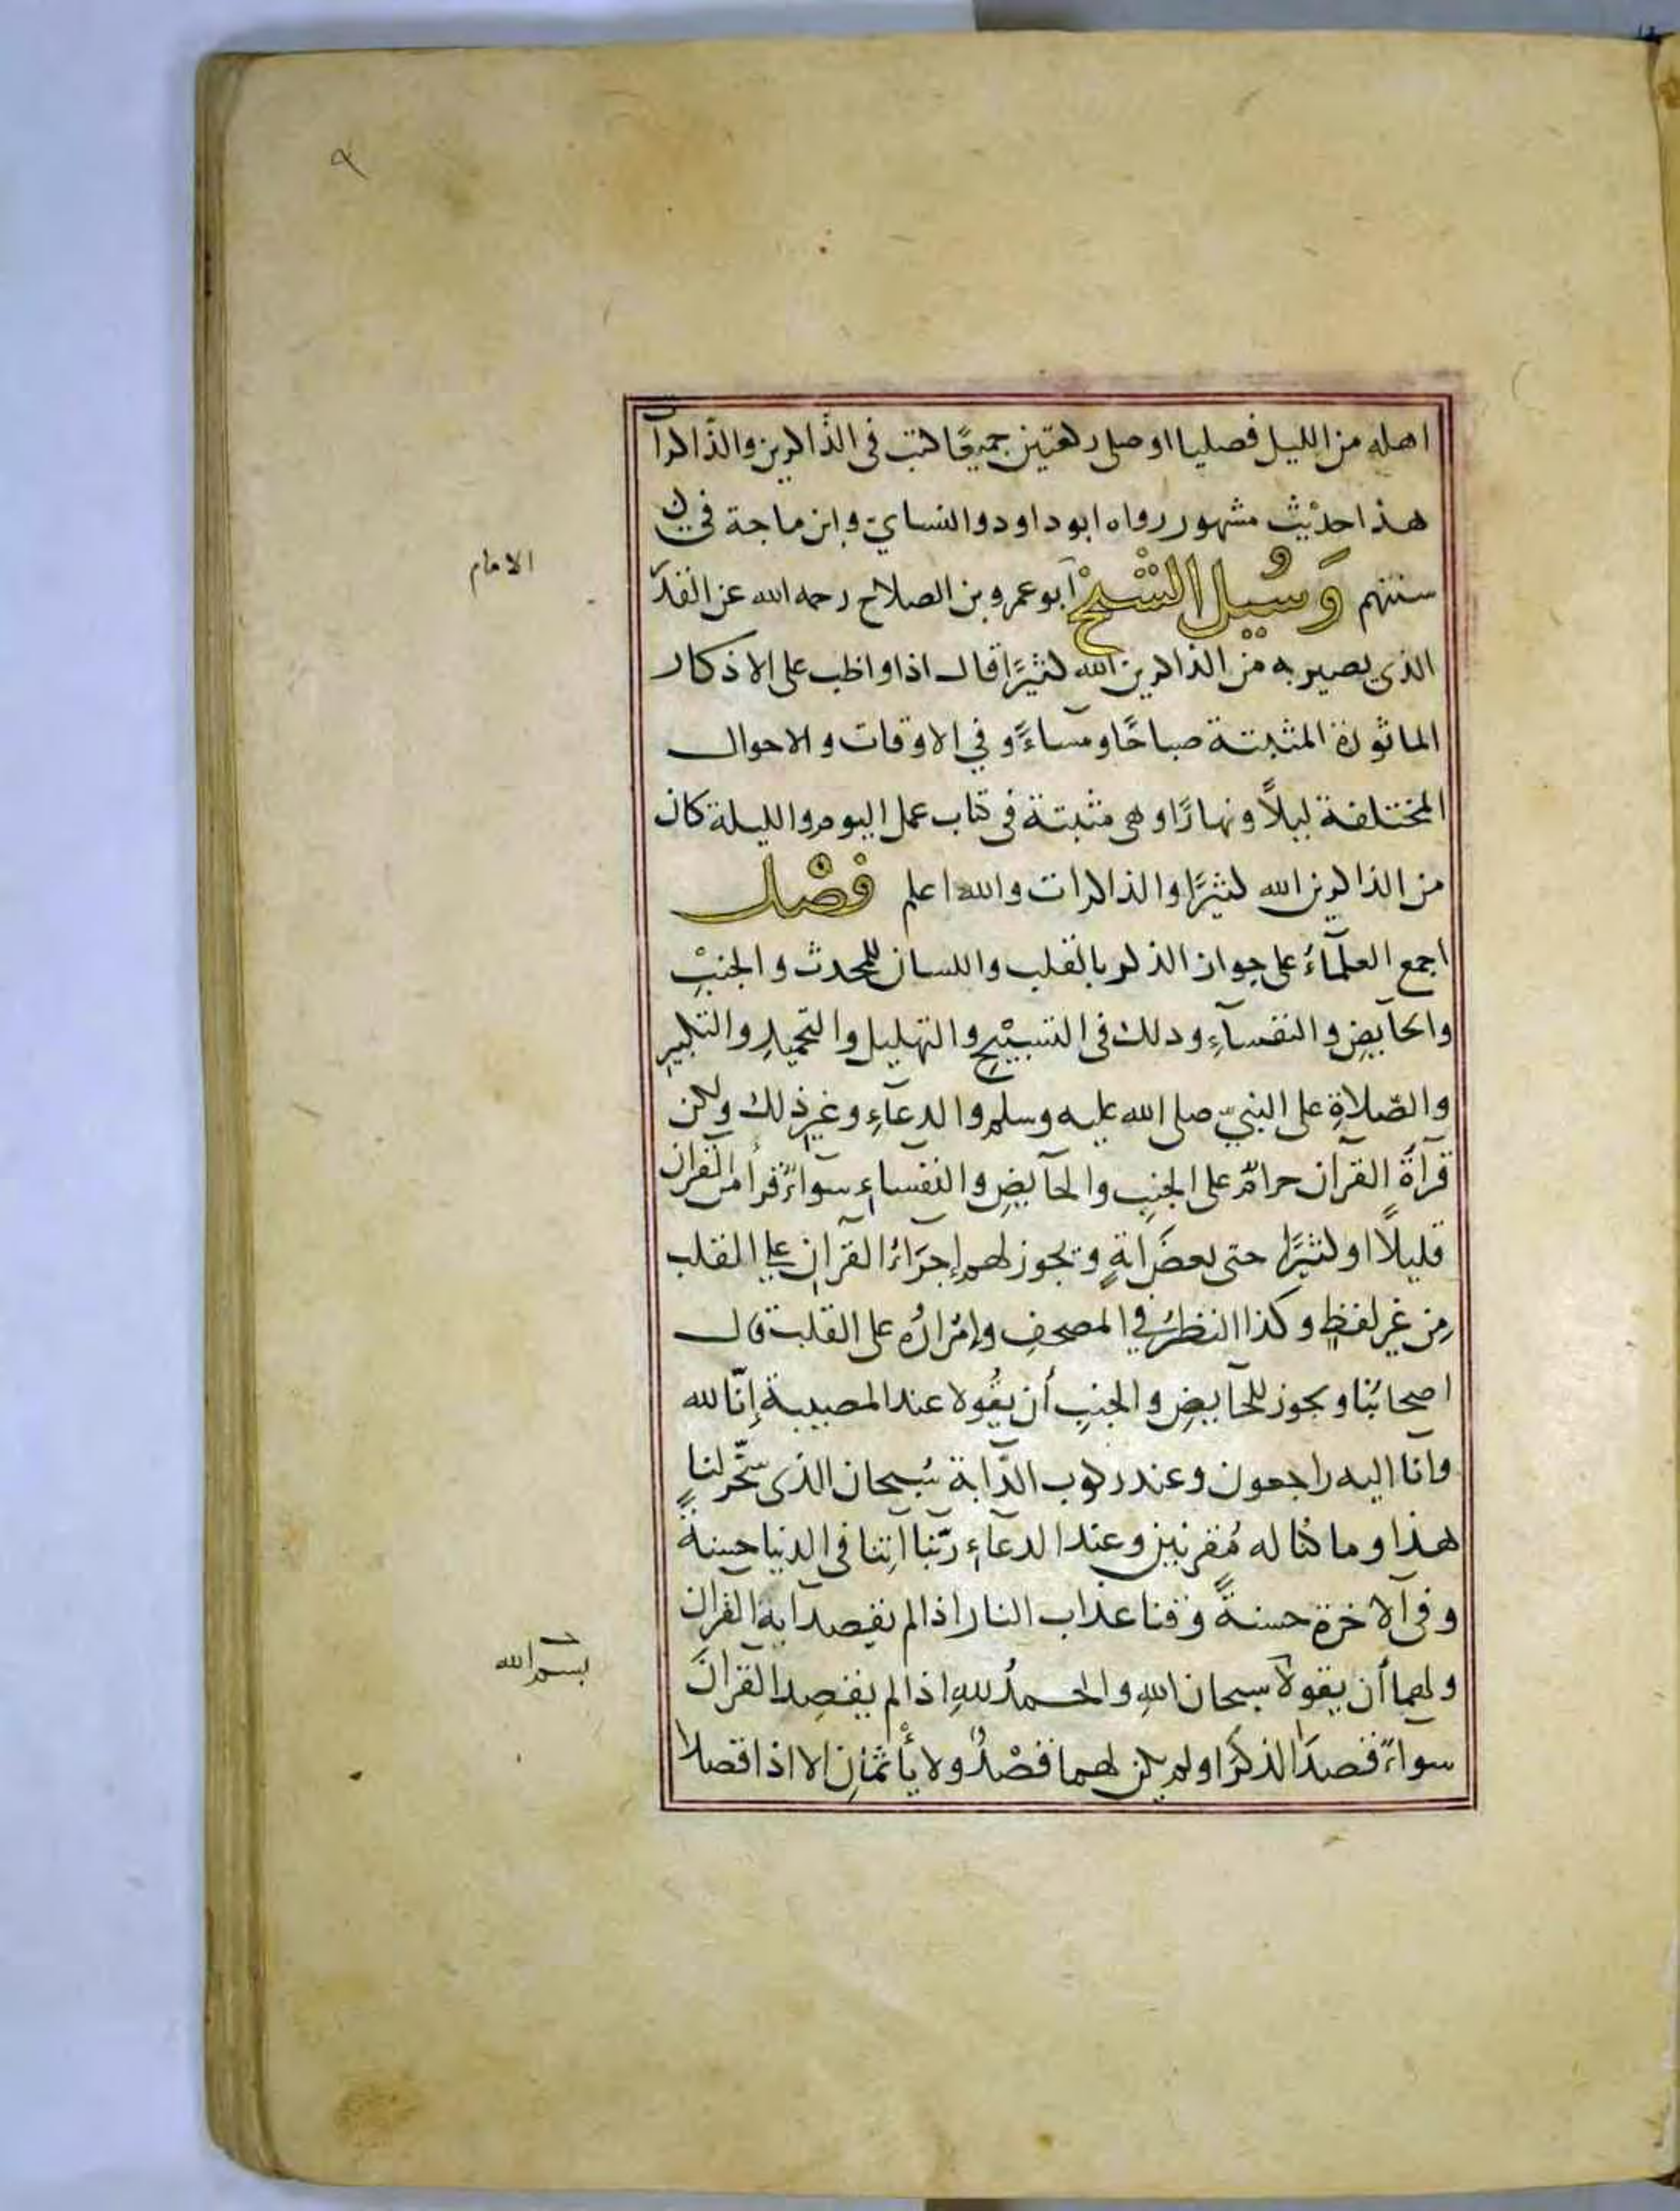 ٩
اهله من الليل فصليا او صلى ركعتين جميعًا كتب فى الذّاكرين والذّاكرات
هذا حديث مشهور رواه ابو داود والنسايّ وابن ماجة فى
الامام
سننهم وَسُيِل الشّيْخ ابو عمرو بن الصلاح رحمه الله عن القدر
الذى يصير به من الذاكرين الله كثيرًا قال اذا واظب على الاذكار
الماثورة المثبتة صباحًا ومساءً وفي الاوقات والاحوال
المختلفة ليلاً ونهارًا وهى مثبتة فى كتاب عمل اليوم والليلة كان
من الذاكرين الله كثيرًا والذاكرات والله اعلم فصْل
اجمع العلمآءُ على جواز الذكر بالقلب واللسان للمحدث والجنبِ
والحايضِ والنفسآءِ وذلك فى التسبيْحِ والتهليل والتحميدِ والتكبيرِ
والصّلاةِ على النبيّ صلى الله عليه وسلم والدعآءِ وغيرِ ذلك ولكن
قرآةُ القرآن حرامٌ على الجنبِ والحآيضِ والنفساءِ سوآءً قرأ من القرآن
قليلاً او كثيرًا حتى بعضَ ايةٍ ويجوز لهم إجرَاءُ القرآنِ على القلب
مِن غير لفظٍ وكذا النظرُ في المصحفِ وإمْرارُه على القلب قال
اصحابُنا ويجوز للحآيضِ والجنبِ أن يقُولا عند المصيبة إنّا لله
وانّا اليه راجعون وعند ركوب الدّابة سُبحان الذى سخّر لنا
هذا وما كنّا له مُقرنين وعند الدعآءِ ربّنا آتِنا فى الدنيا حسنةً
وفى الآخرة حسنةً وقنا عذاب النار اذا لم يقصدا به القرآن
بسم الله
ولهما أن يقولا سبحان اللهِ والحمدُ للهِ اذا لم يقصِدا القرآنَ
سواءً قصدَا الذكرَ او لم يكن لهما قصْدٌ ولا يأثمانِ الا اذا قصدا